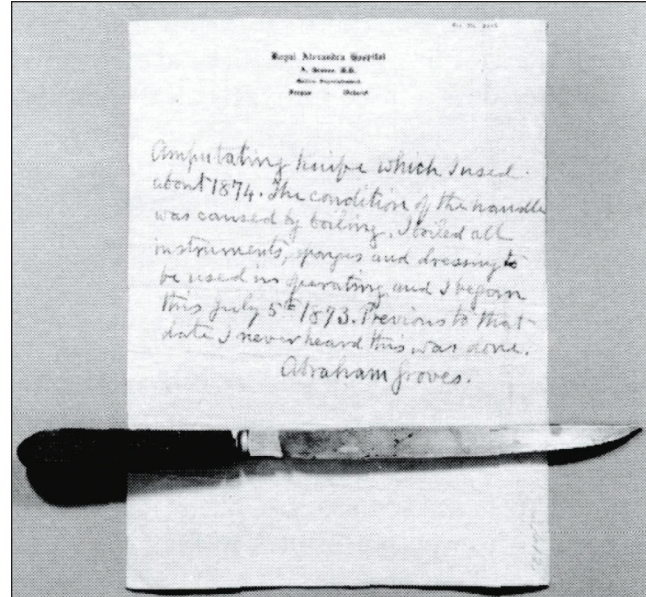 Royal Alexandra Hospital
A. Groves M.D.
Medical Superintendent
Fergus Ontario
Amputating knife which I used
about 1874. The condition of the handle
was caused by boiling. I boiled all
instruments, sponges and dressing to
be used in operating and I began
this July 5th 1873. Previous to that
date I never heard this was done.
Abraham Groves.